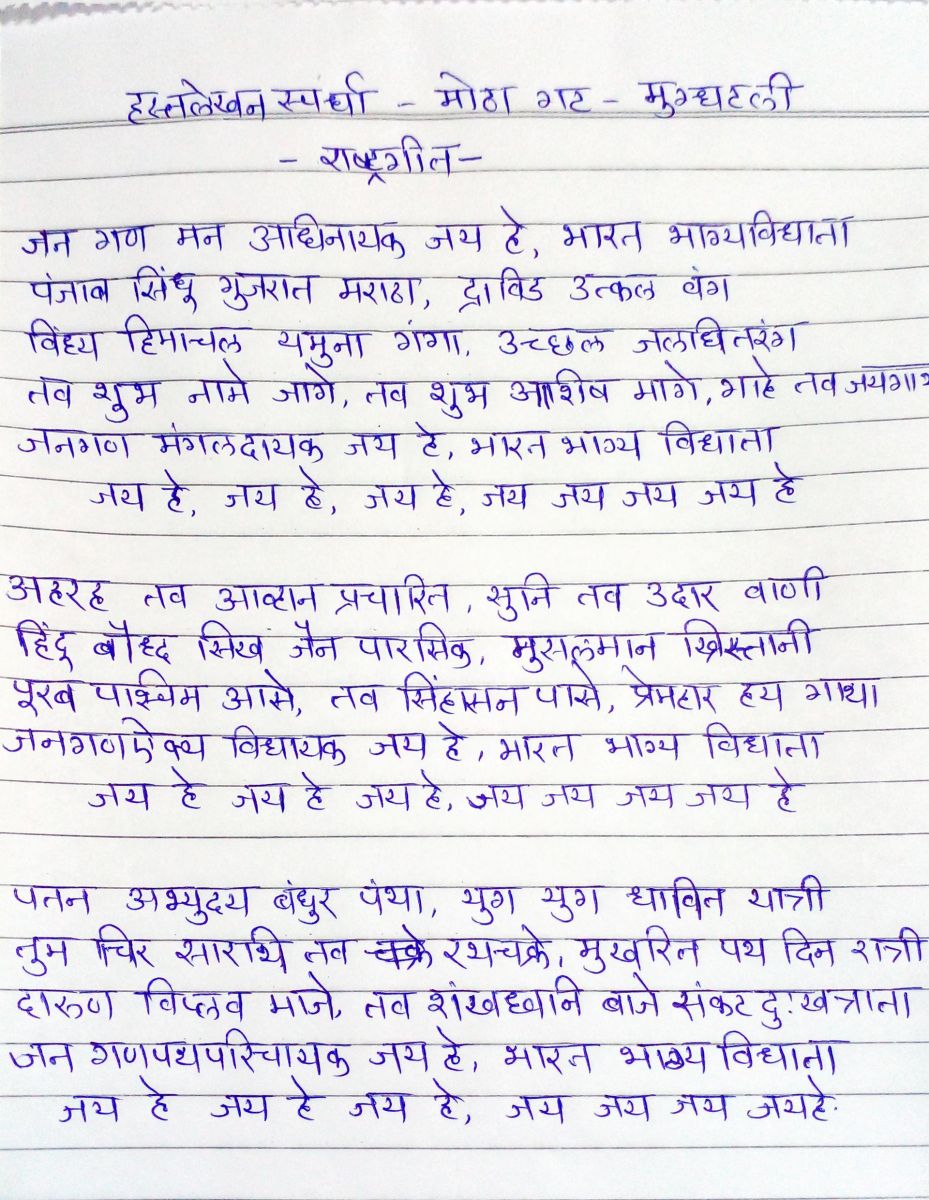 हस्तलेखन स्पर्धा - मोठा गट - मुग्धटली
- राष्ट्रगीत -
जन गण मन अधिनायक जय हे, भारत भाग्यविधाता
पंजाब सिंधू गुजरात मराठा, द्राविड उत्कल वंग
विंध्य हिमाचल यमुना गंगा, उच्छल जलधितरंग
तव शुभ नामे जागे, तव शुभ आशीष मागे, गाहे तव जयगाथा
जनगण मंगलदायक जय हे, भारत भाग्य विधाता
जय हे, जय हे, जय हे, जय जय जय जय हे
अहरह तव आव्हान प्रचारित, सुनि तव उदार वाणी
हिंदू बौध्द सिख जैन पारसिक, मुसलमान ख्रिस्तानी
पूरब पश्चिम आसे, तव सिंहासन पासे, प्रेमहार हय गाथा
जनगणऐक्य विधायक जय हे, भारत भाग्य विधाता
जय हे जय हे जय हे, जय जय जय जय हे
पतन अभ्युदय बंधुर पंथा, युग युग धावित यात्री
तुम चिर सारथि तव रथचक्रे, मुखरित पथ दिन रात्री
दारुण विप्लव माजे, तव शंखध्वनि बाजे संकट दुःखत्राता
जन गणपथपरिचायक जय हे, भारत भाग्य विधाता
जय हे जय हे जय हे, जय जय जय जयहे.